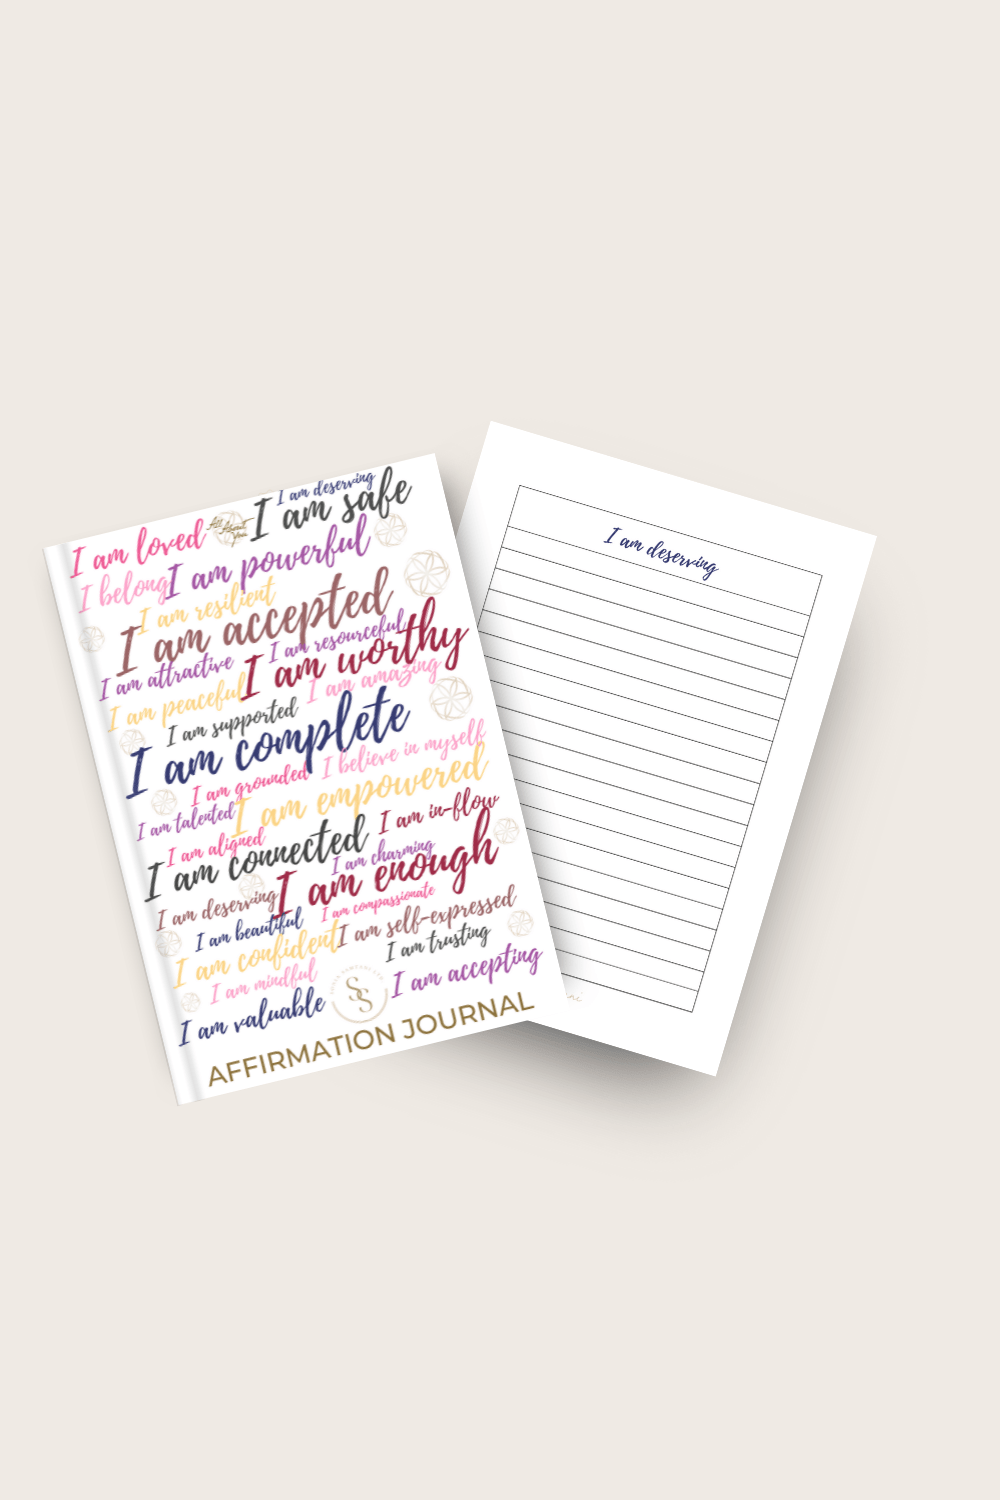 I am deserving
I am loved
All About You
I am safe
I belong
I am powerful
I am resilient
I am accepted
I am resourceful
I am attractive
I am worthy
I am amazing
I am peaceful
I am supported
I am complete
I believe in myself
I am grounded
I am empowered
I am talented
I am in-flow
I am aligned
I am connected
I am charming
I am enough
I am deserving
I am compassionate
I am beautiful
I am self-expressed
I am confident
I am trusting
I am mindful
I am accepting
I am valuable
SS
AFFIRMATION JOURNAL
I am deserving